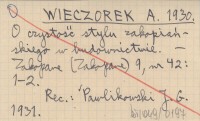 WIECZOREK A. 1930.
O czystość stylu zakopiań-
skiego w budownictwie. —
Zakopane (Zakopane) 9, nr 42:
1-2.
Rec.: Pawlikowski J. G.
1931.